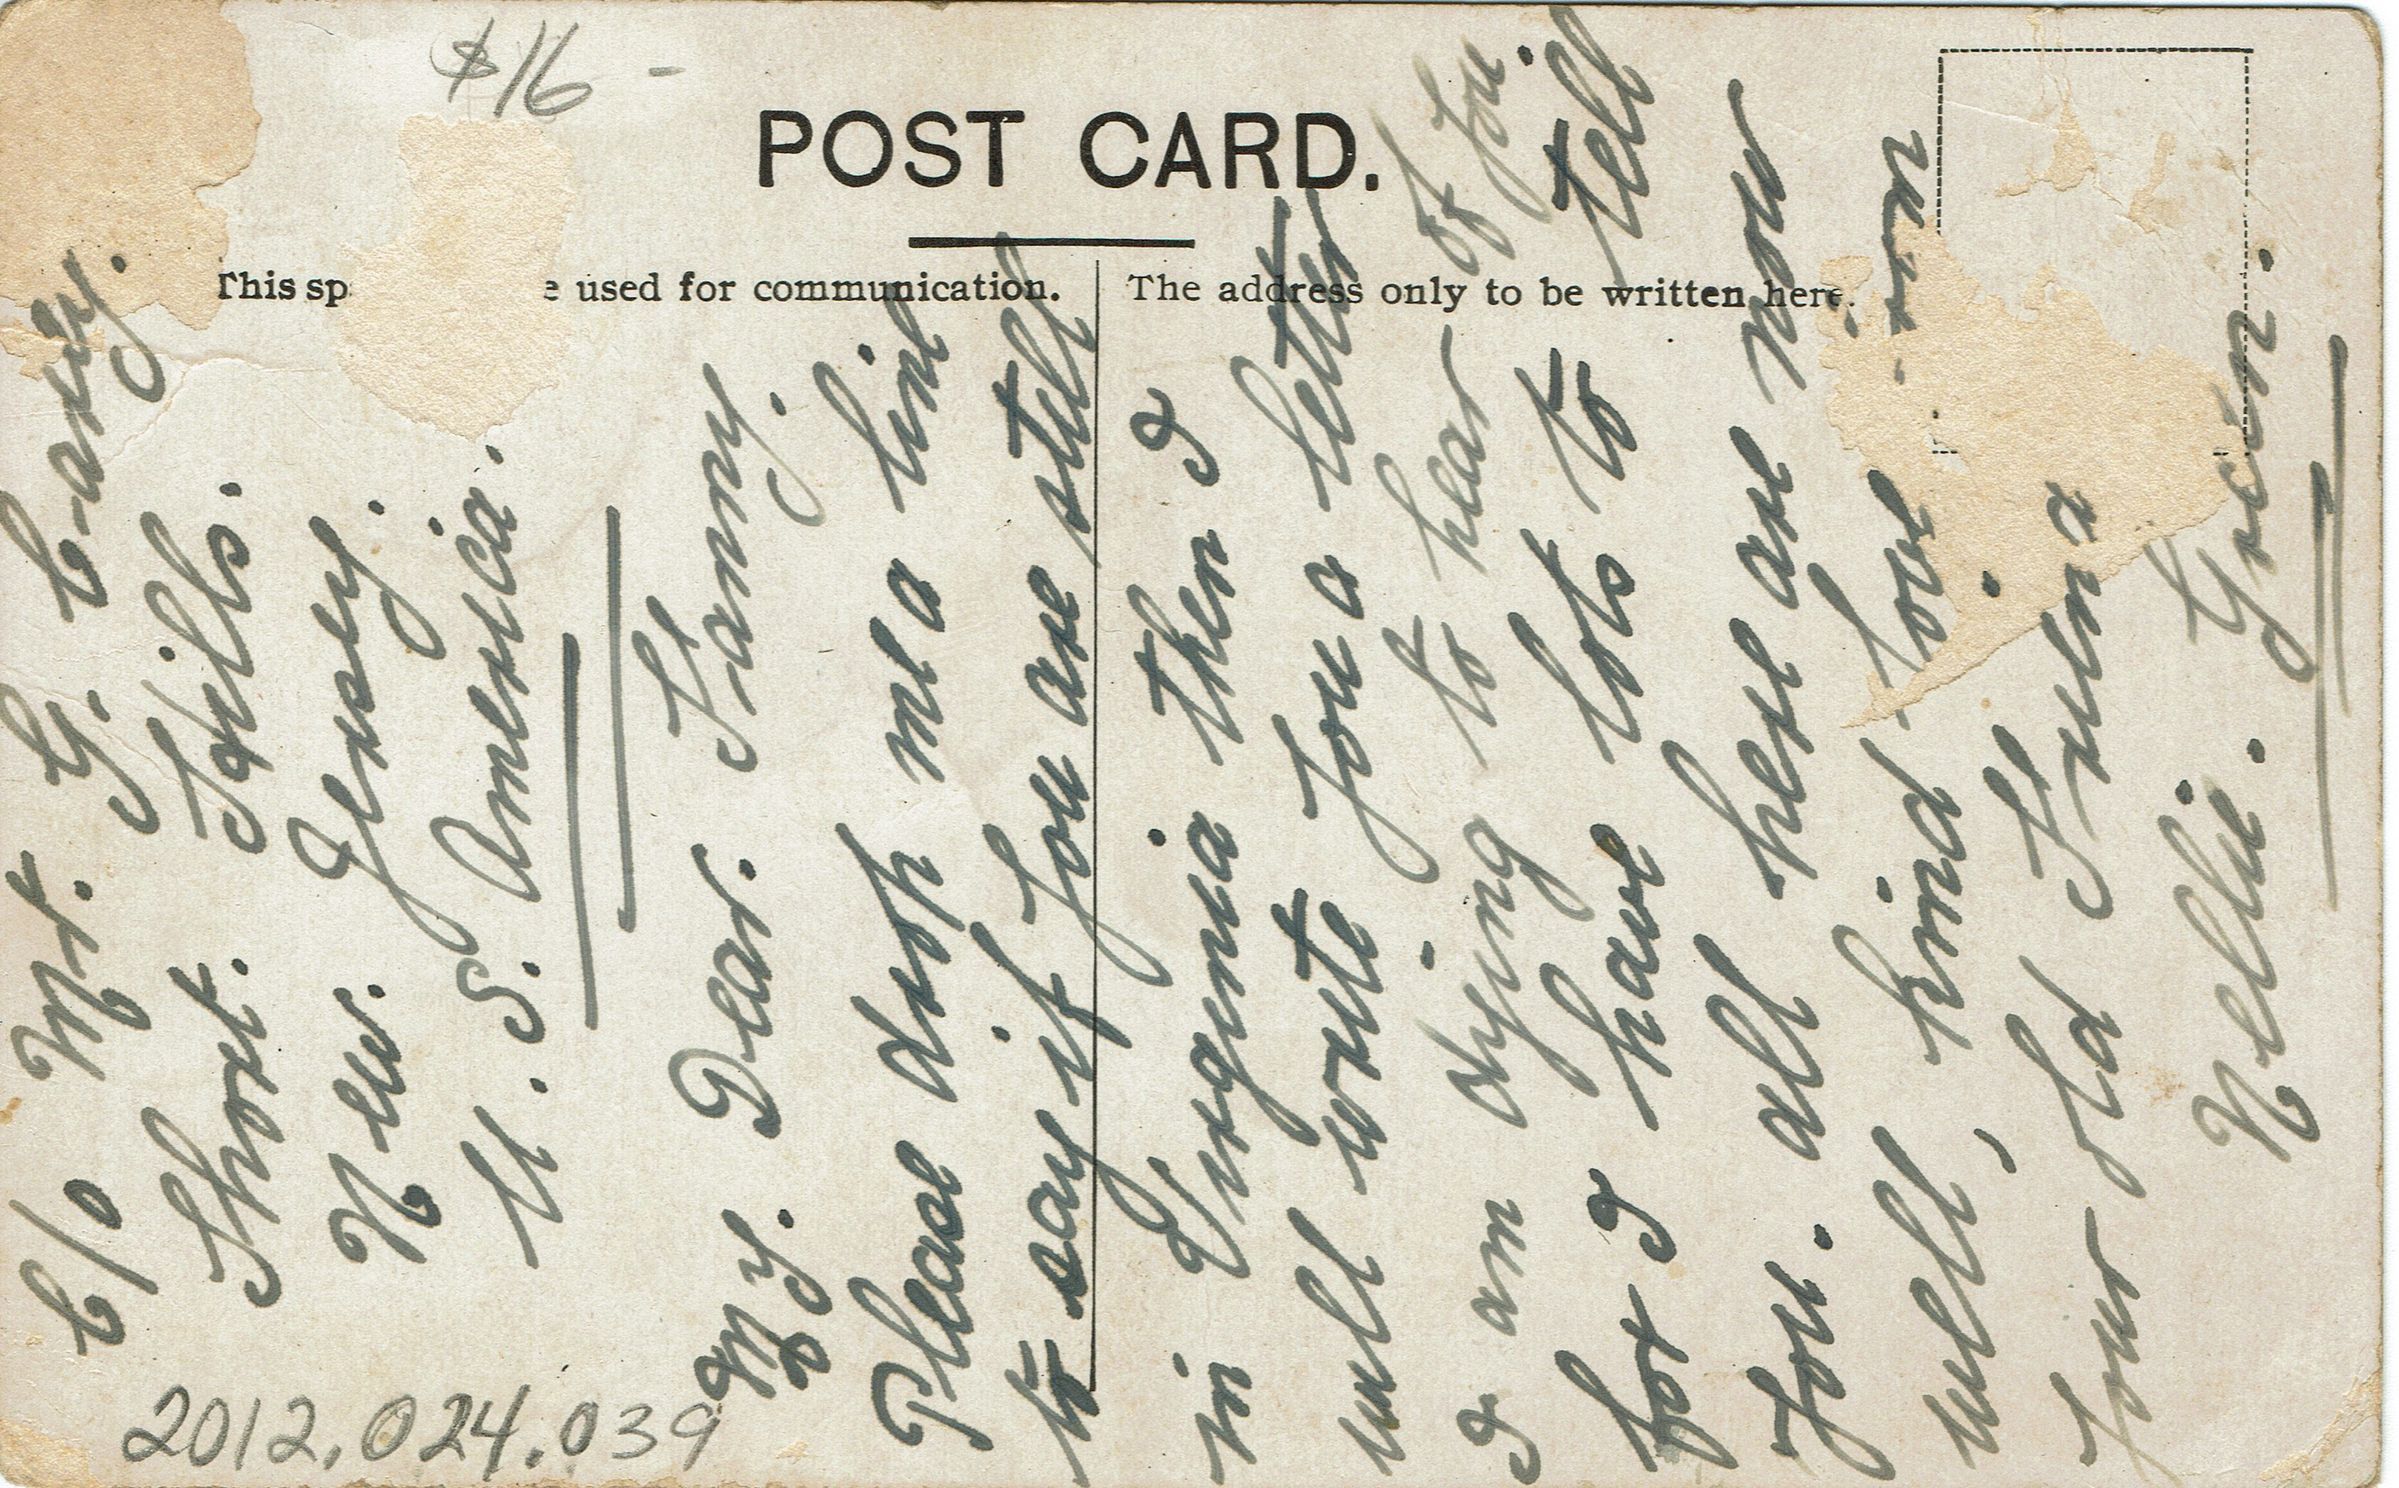 $16 -
POST CARD.
This sp e used for communication.
The address only to be written here.
C/o Mr. G. Carey.
Short. Hills.
New. Jersey.
U. S. America.
My. Dear. Fanny.
Please drop me a line
to say if you are still
in Virginia then I
will write you a letter
I am dying to hear of you.
for I have lots to tell
you. all here are now
well, kind love
your old Friend
Nellie. Green.
2012.024.039